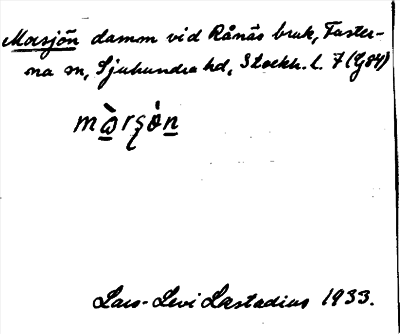 Morsjön damm vid Rånäs bruk, Faster-
na sn, Sjuhundra hd, Stockh. l. 7 (G84)
Lars-Levi Læstadius 1933.